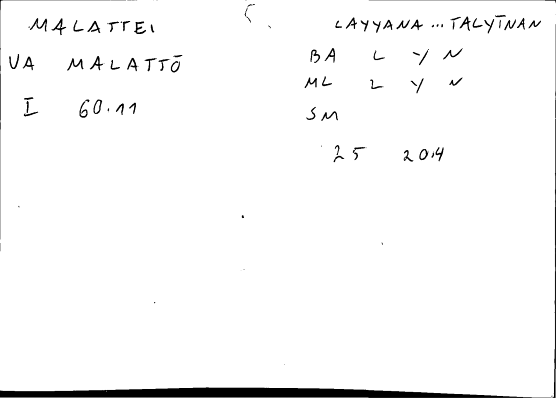 MALATTEI
VA MALATTŌ
I 60.11
LAYYANA ... TALYĪNAN
BA L Y N
ML L Y N
SM
25 20.4